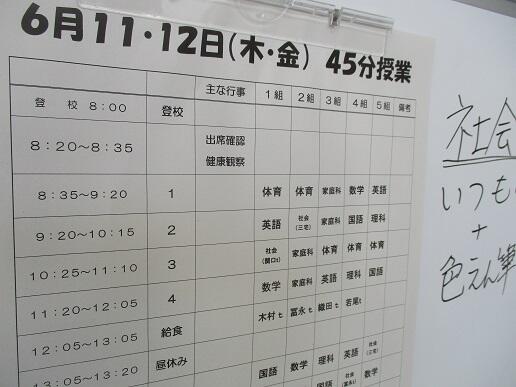 6月11・12日(木・金) 45分授業
主な行事 1組 2組 3組 4組 5組 備考
登 校 8:00 登校
8:20～8:35 出席確認
健康観察
8:35～9:20 1 体育 体育 家庭科 数学 英語
9:20～10:15 2 英語 社会(三宅) 家庭科 国語 理科
10:25～11:10 3 社会(関口t) 家庭科 体育 体育 体育
11:20～12:05 4 数学 家庭科 英語 理科 国語
12:05～13:05 給食 木村t 冨永t 織田t 若尾t
13:05～13:20 昼休み
国語 数学 理科 英語 社会(三宅)
国語 社会 数学
社会
いつも
+
色えん筆